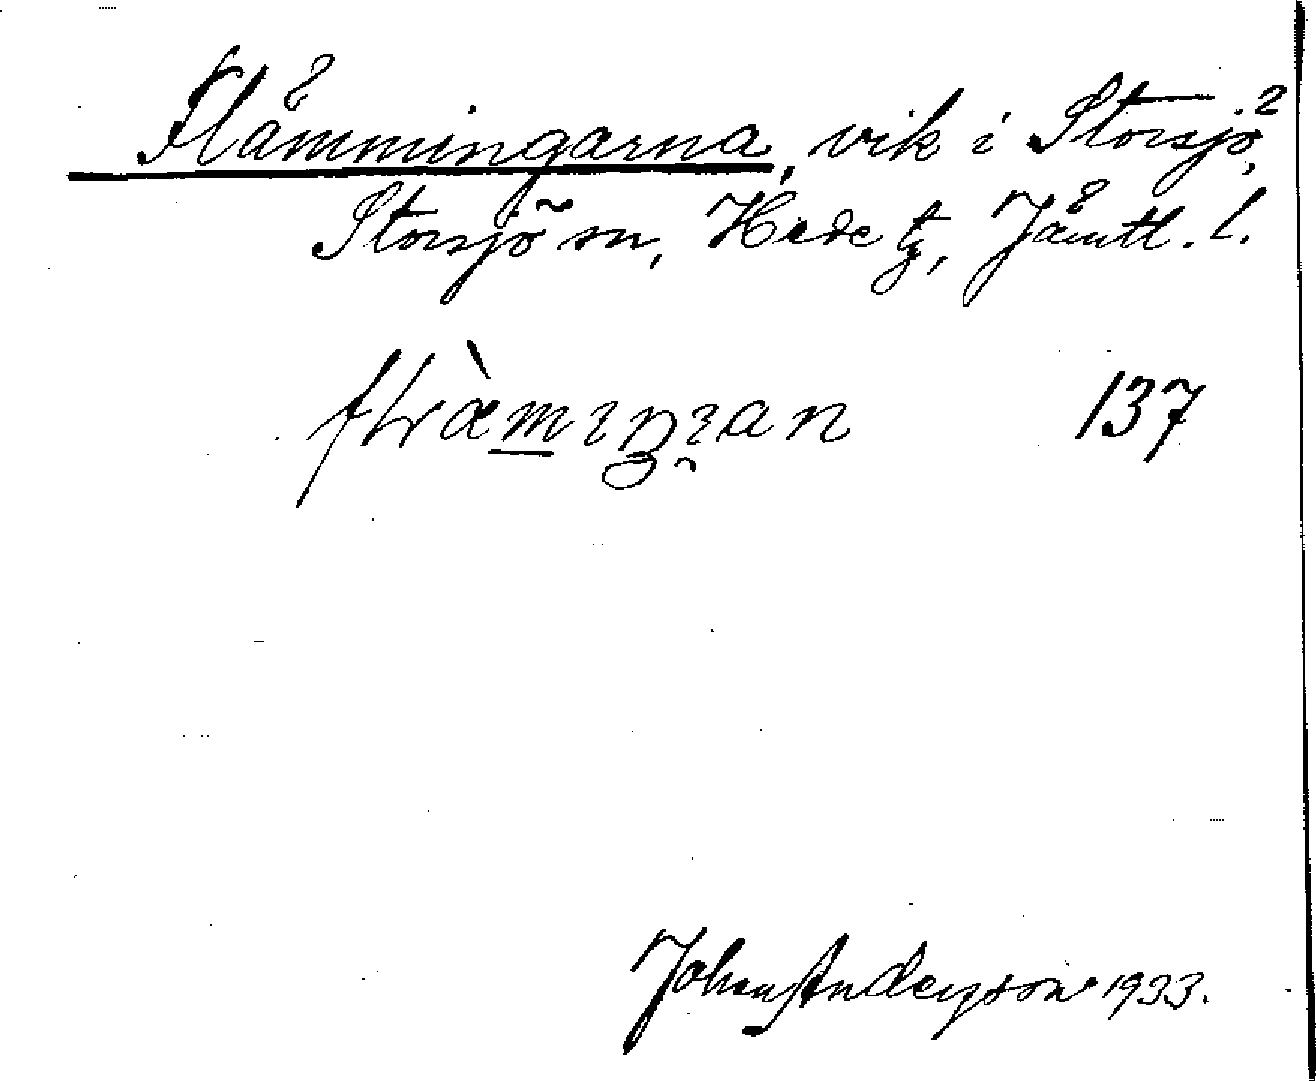 Flämmingarna, vik i Storsjö,
Storsjö sn, Hede tg, Jämtl. l.
137
Johan Anderson 1933.